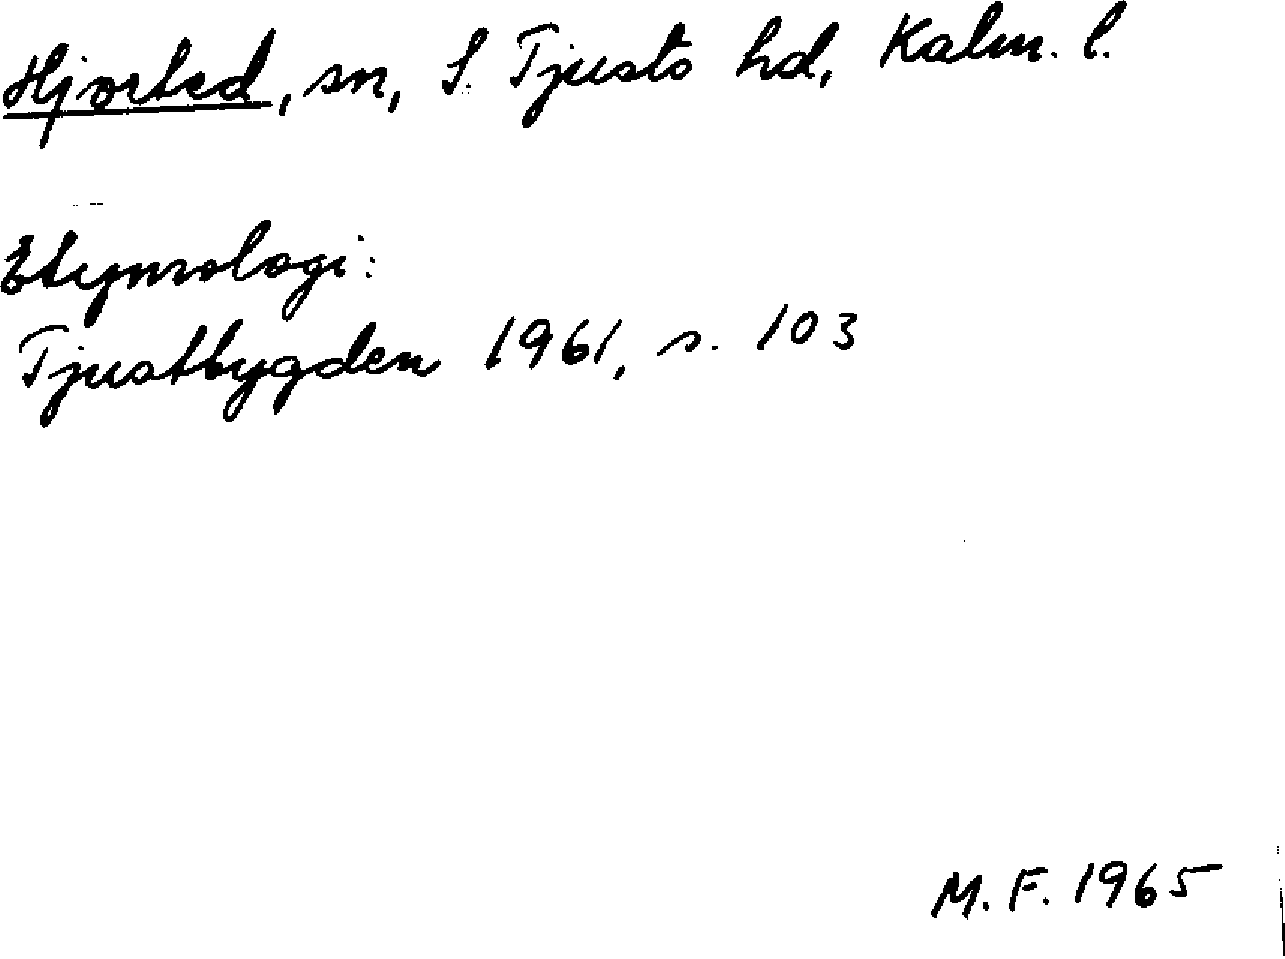 Hjorted, sn, S. Tjusts hd, Kalm. l.
Etymologi:
Tjustbygden 1961, s. 103
M. F. 1965